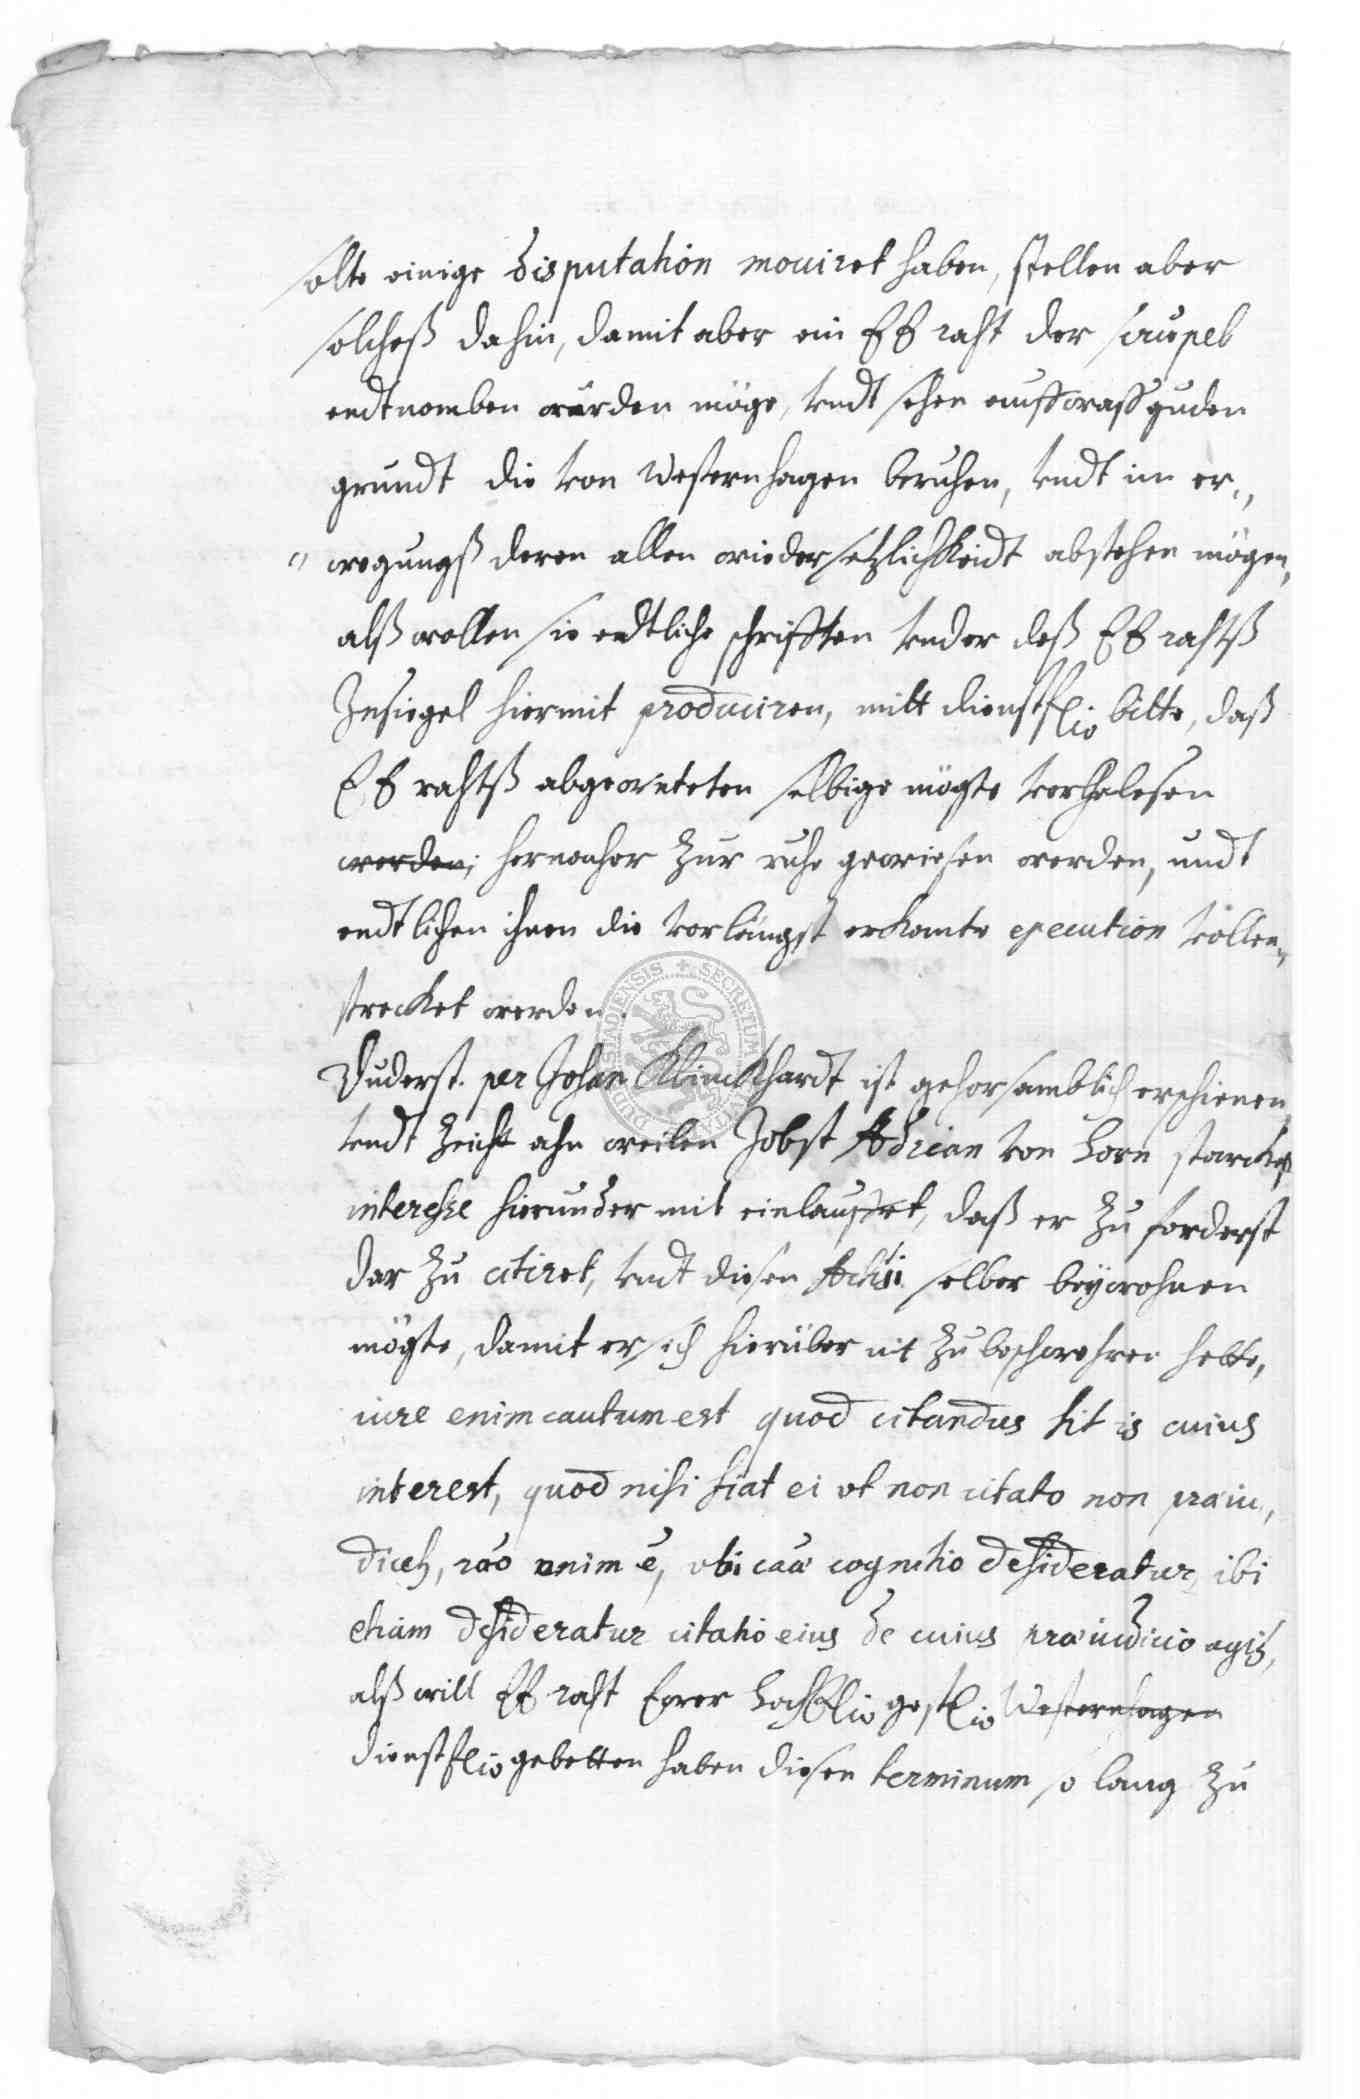 solte einige disputation moviret haben, stellen aber
solcheß dahin, damit aber ein EE raht der scrupel
endtnomben würden möge, undt sehen auff waß guden
grundt die von Westernhagen beruhen, undt im er„
„ wegungß deren allen wiedersetzlichkeidt abstehen mögen,
alß wollen sie endtliche schrifften under deß EE rahtß
Insiegel hiermit produciren, mitt dienstfl. bitte, daß
EE rahtß abgeorneten selbige mögte verlesen
werden, hernacher zur ruhe gewiesen werden, undt
endtlichen ihnen die vorlängst erkante execution vollen„
strecket werden.
Duderst. per Johan Klinckhardt ist gehorsamblich erschienen,
undt zeicht ahn weilen Jobst Adrian von Horn starckeß
interesse hierunder mit einlauffet, daß er zu forderst
dar zu citiret, undt diesen Actui selber beÿwohnen
mögte, damit er sich hierüber nit zu beschwehren hette,
iure enim cautum est quod citandus sit is cuius
interest, quod nisi fiat ei ut non citato non præiu„
dicet, rão enim e, ubi caũæ cognitio desideratur, ibi
etiam desideratur citatio eius de cuius præiudicio agit,
alß will EE raht Ewer Westernhagen
dienstfl. gebetten haben diesen terminum so lang zu
DUDERSTADIENSIS + SECRETUM